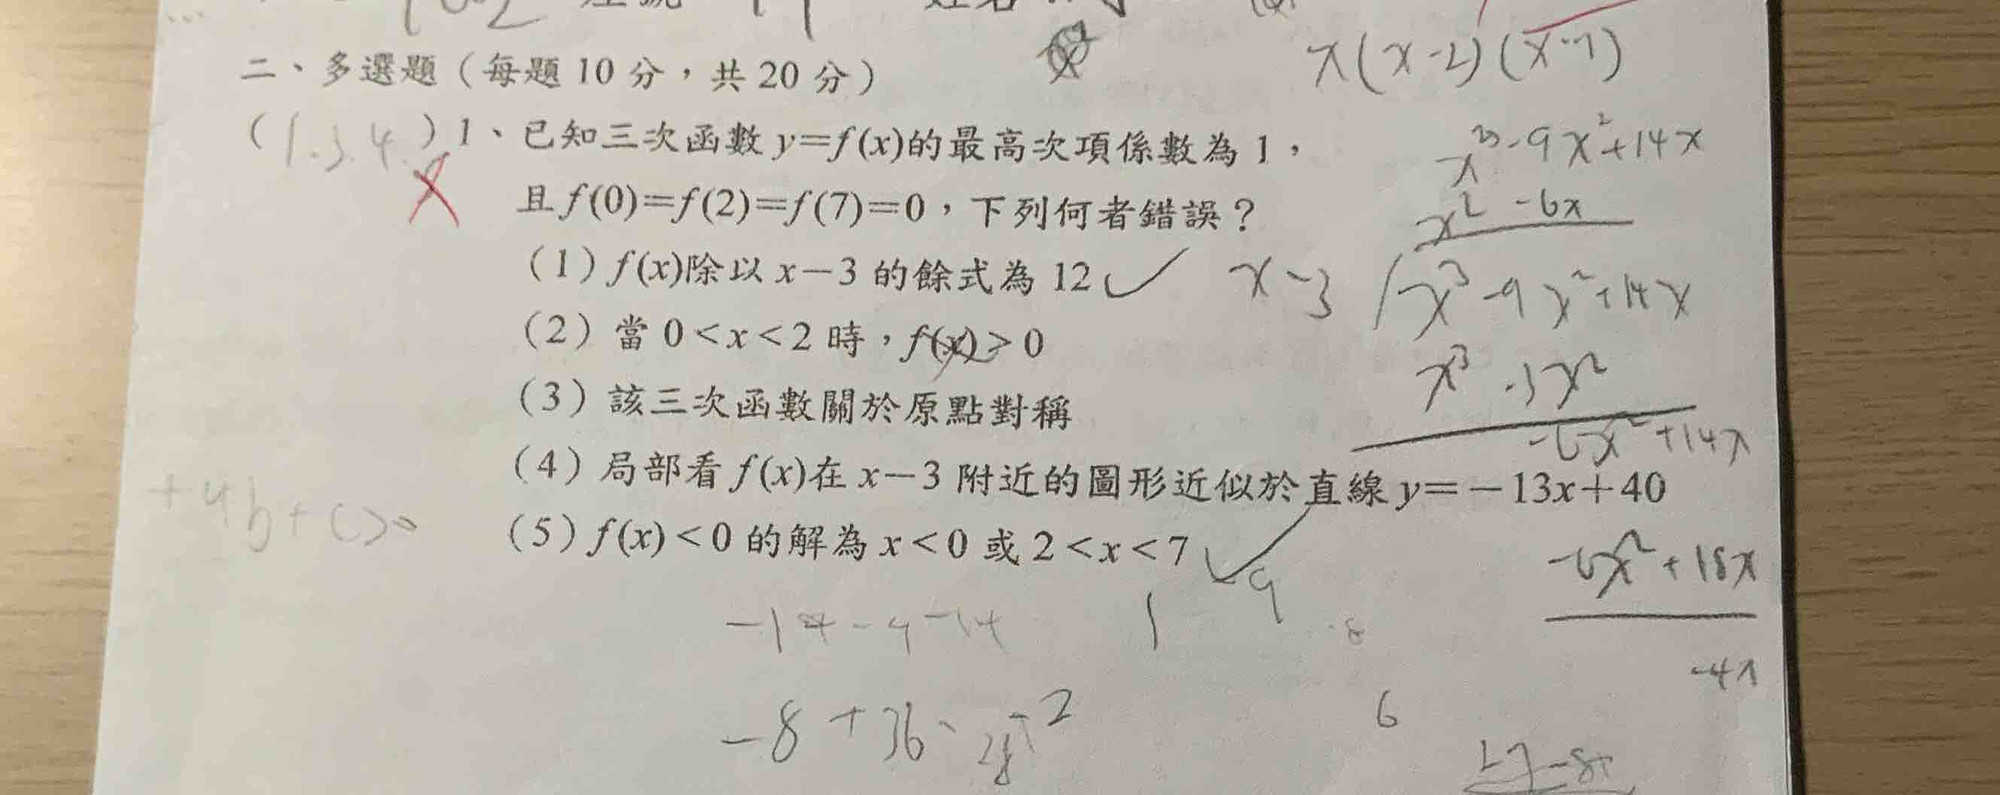 二、多選題（每題 10 分，共 20 分）
x(x-2)(x-7)
（1.3.4）1、已知三次函數 y=f(x)的最高次項係數為 1，
x³-9x²+14x
且 f(0)=f(2)=f(7)=0，下列何者錯誤？
x²-6x
（1）f(x)除以 x－3 的餘式為 12
x-3
x³-9x²+14x
（2）當 0<x<2 時，f(x)>0
x³-3x²
（3）該三次函數關於原點對稱
-6x²+14x
（4）局部看 f(x)在 x－3 附近的圖形近似於直線 y=－13x+40
+4b+c>0
（5）f(x)<0 的解為 x<0 或 2<x<7
-6x²+18x
1 -9
-4x
-8+36-28
6